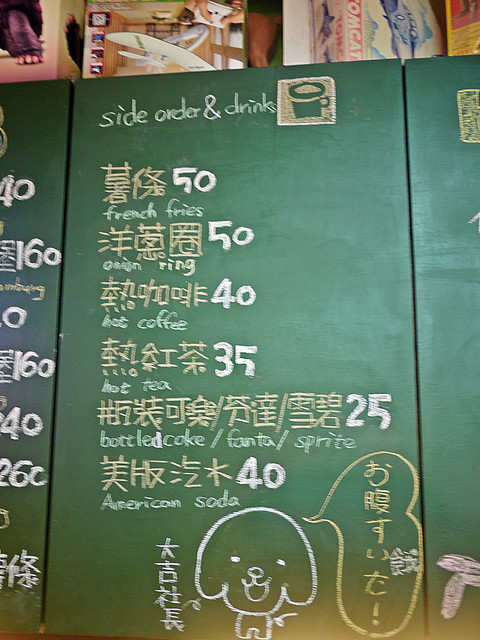 TOMCAT
side order & drinks
薯條 50
french fries
洋蔥圈 50
onion ring
熱咖啡 40
hot coffee
熱紅茶 35
hot tea
瓶裝可樂/芬達/雪碧 25
bottled coke / fanta / sprite
美版汽水 40
American soda
お腹すいた!
餓
大吉社長
40
圈160
0
圈160
40
260
薯條